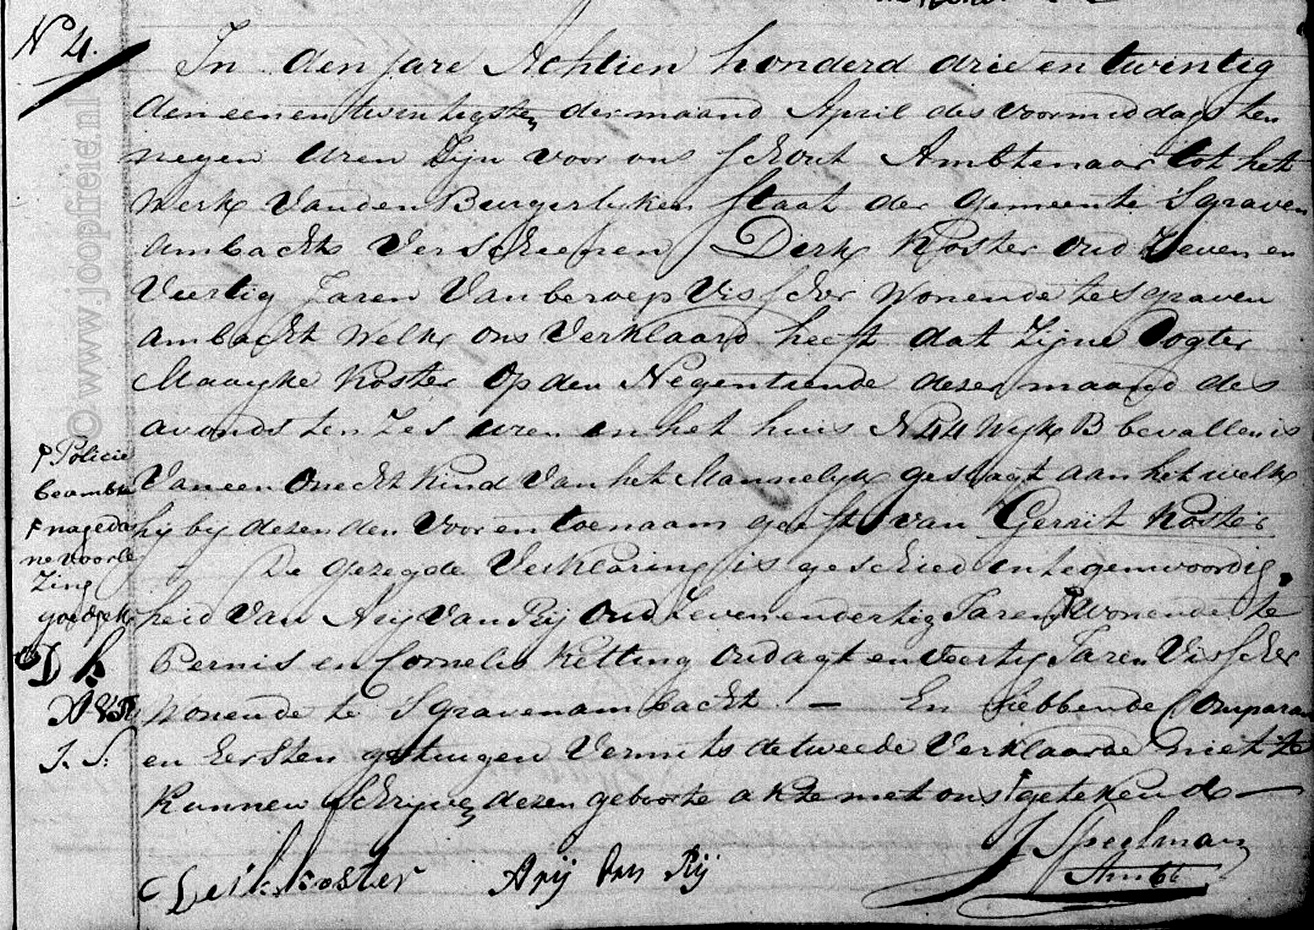 N 4.
In den jare Achtien honderd drie en twintig
den eenentwintigsten der maand April des voormiddags ten
negen uren Zijn voor ons Schout Ambtenaar tot het
Werk Vanden Burgerlyken Staat der Gemeente Sgraven
ambacht Verscheenen Dirk Koster oud Zeven en
Veertig Jaren Van beroep Visscher Wonende te Sgraven
ambacht Welke ons Verklaard heeft dat Zijne Dogter
Maayke Koster Op den Negentiende dezer maand des
avonds ten Zes uren in het huis N 44 Wyk B bevallen is
Van een Onecht Kind Van het Mannelyk geslagt aan het welk
hy by dezen den Voor en toenaam geeft van Gerrit Koster
De Gezegde Verklaring is geschied in tegenwoordig
heid Van Arij Van Rij Oud Zevenendertig Jaren Wonende te
Pernis en Cornelis Ketting Oud agt en Veertig Jaren Visscher
Wonende te Sgravenambacht — En hebbende Comparan
en Eersten getuigen Vermits de tweede Verklaarde niet te
Kunnen Schrijven dezen geboorte akte met ons getekend —
Policie
beambte
nageda
ne voorle
Zing
goedgek
D k
A V R
J. S.
Dirk Koster Arij van Rij J Speelman
© www.joopfriel.nl